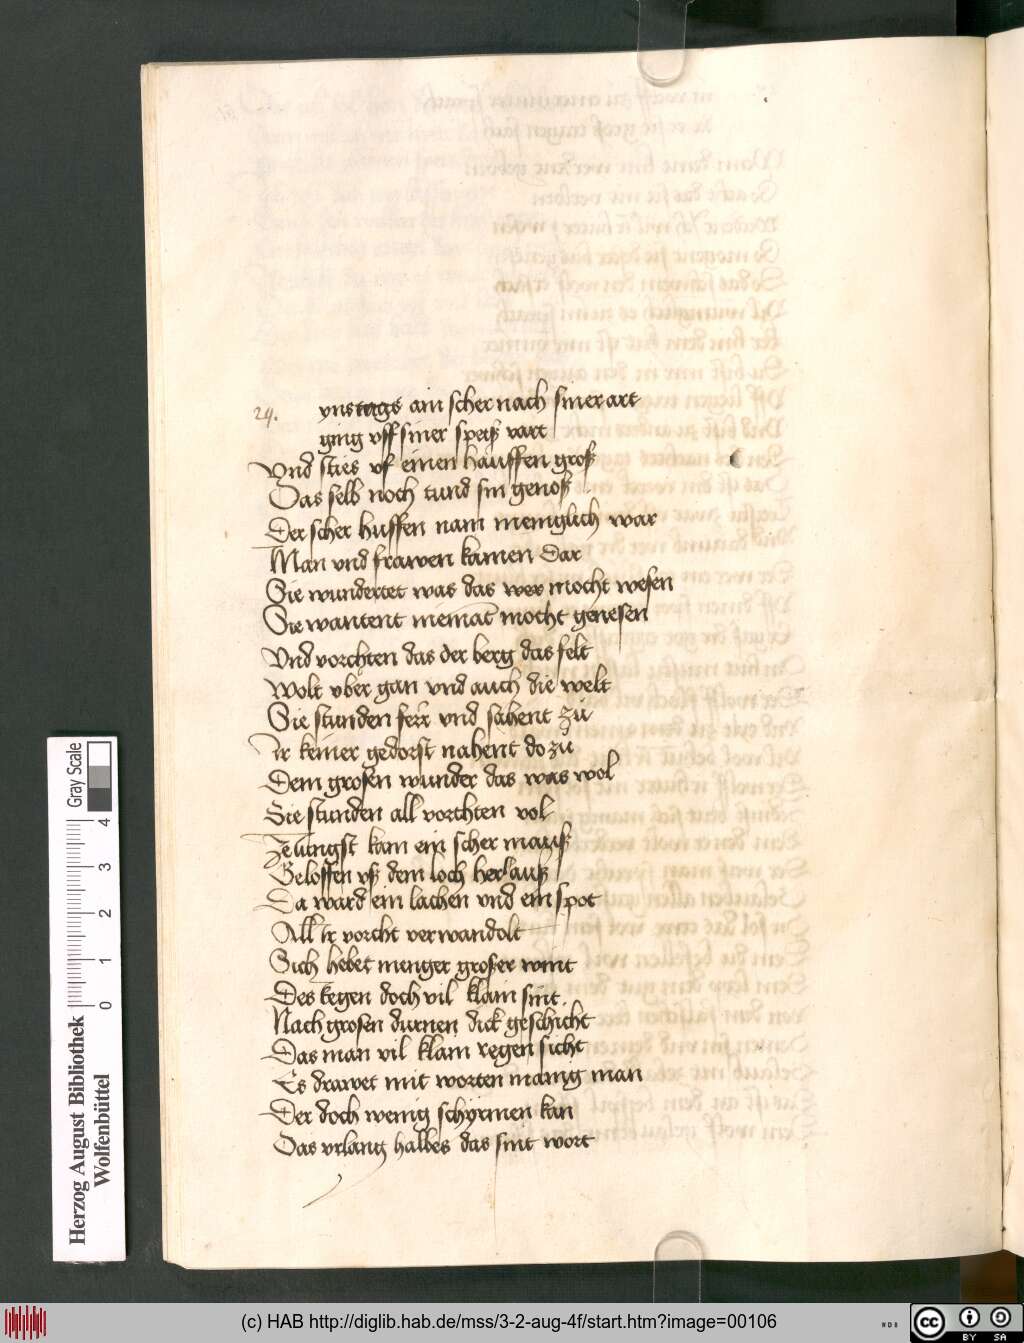 24. ynstags ain scher nach siner art
ging vff siner speiß vart
Vnd sties vf einen hauffen groß
Das selb noch tund sin genoß
Der scher huffen nam meniglich war
Man vnd frawen kamen dar
Sie wundertet was das wer mocht wesen
Sie wantent niemat mocht genesen
Vnd vorchten das der berg das felt
Wolt vber gan vnd auch die welt
Sie stunden ferr vnd sahent zü
Ir keiner gedorst nahent do zü
Dem grosen wunder das was wol
Sie stunden all vorchten vol
Zeüngst kam ein scher mauß
Geloffen vß dem loch her auß
Da ward ein lachen vnd ein spot
All ir vorcht verwandolt
Sich hebet menger groser wint
Des regen doch vil klain sint
Nach grosen durnen dick geschicht
Das man vil klain regen sicht
Es drawet mit worten manig man
Der doch wenig schyrmen kan
Das vrlang halbes das sint wort
Gray Scale
0 1 2 3 4
Herzog August Bibliothek
Wolfenbüttel
(c) HAB http://diglib.hab.de/mss/3-2-aug-4f/start.htm?image=00106
WDB
cc BY SA